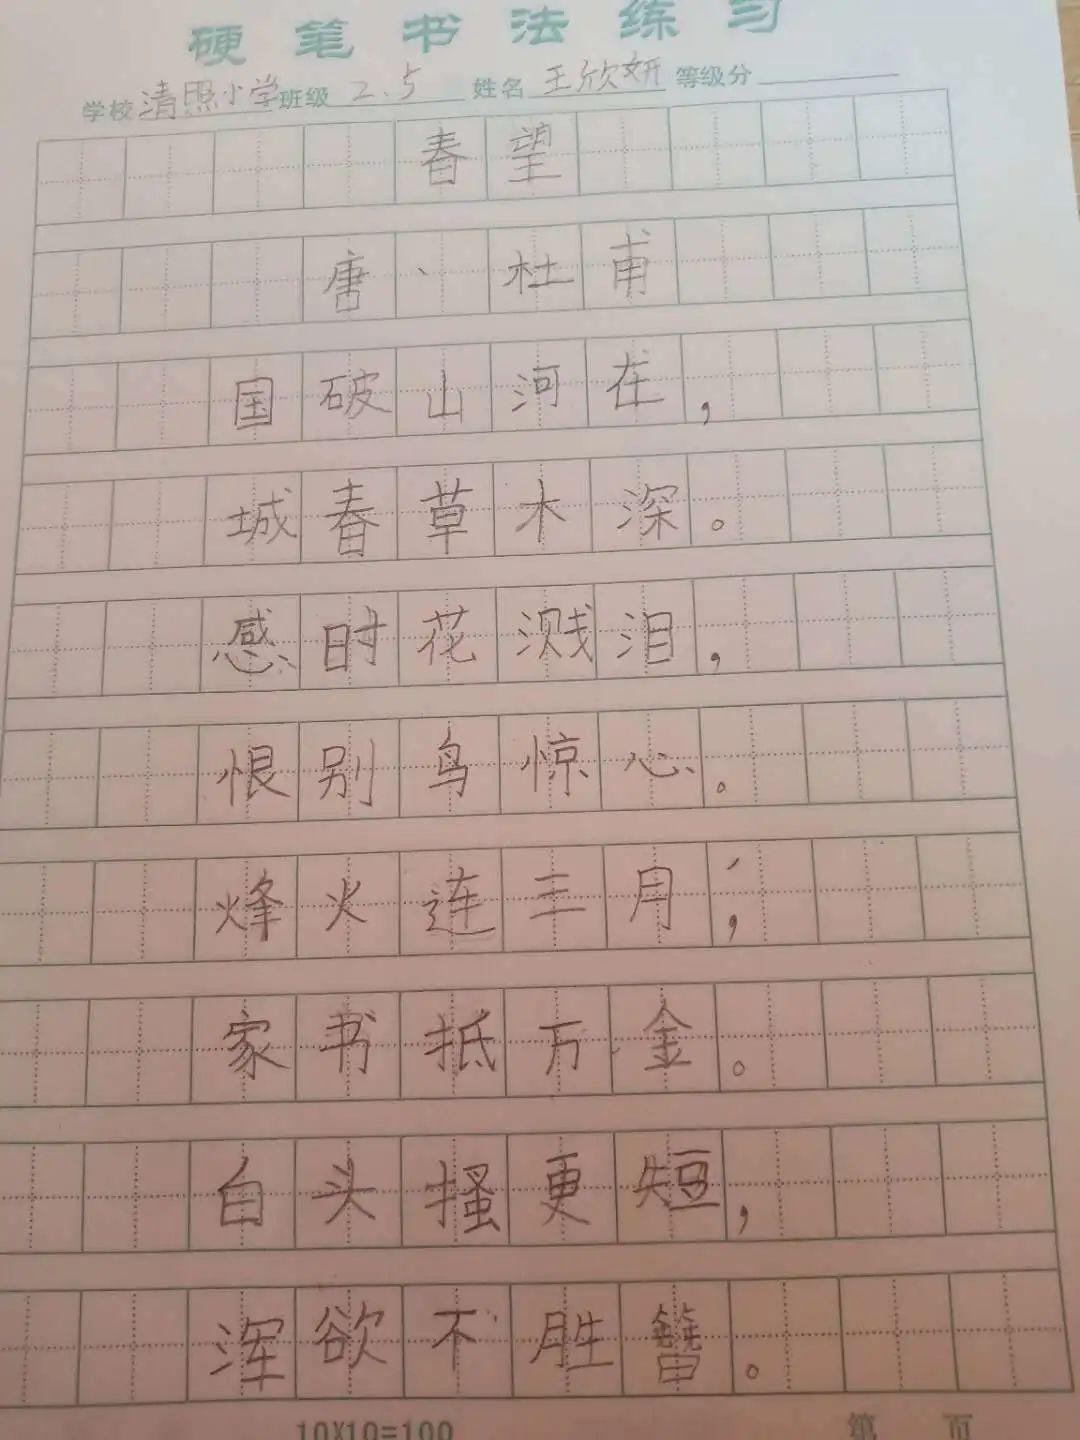 硬笔书法练习
学校 清照小学 班级 2.5 姓名 王欣妍 等级分
春望
唐、杜甫
国破山河在，
城春草木深。
感时花溅泪，
恨别鸟惊心。
烽火连三月；
家书抵万金。
白头搔更短，
浑欲不胜簪。
10X10=100 第 页